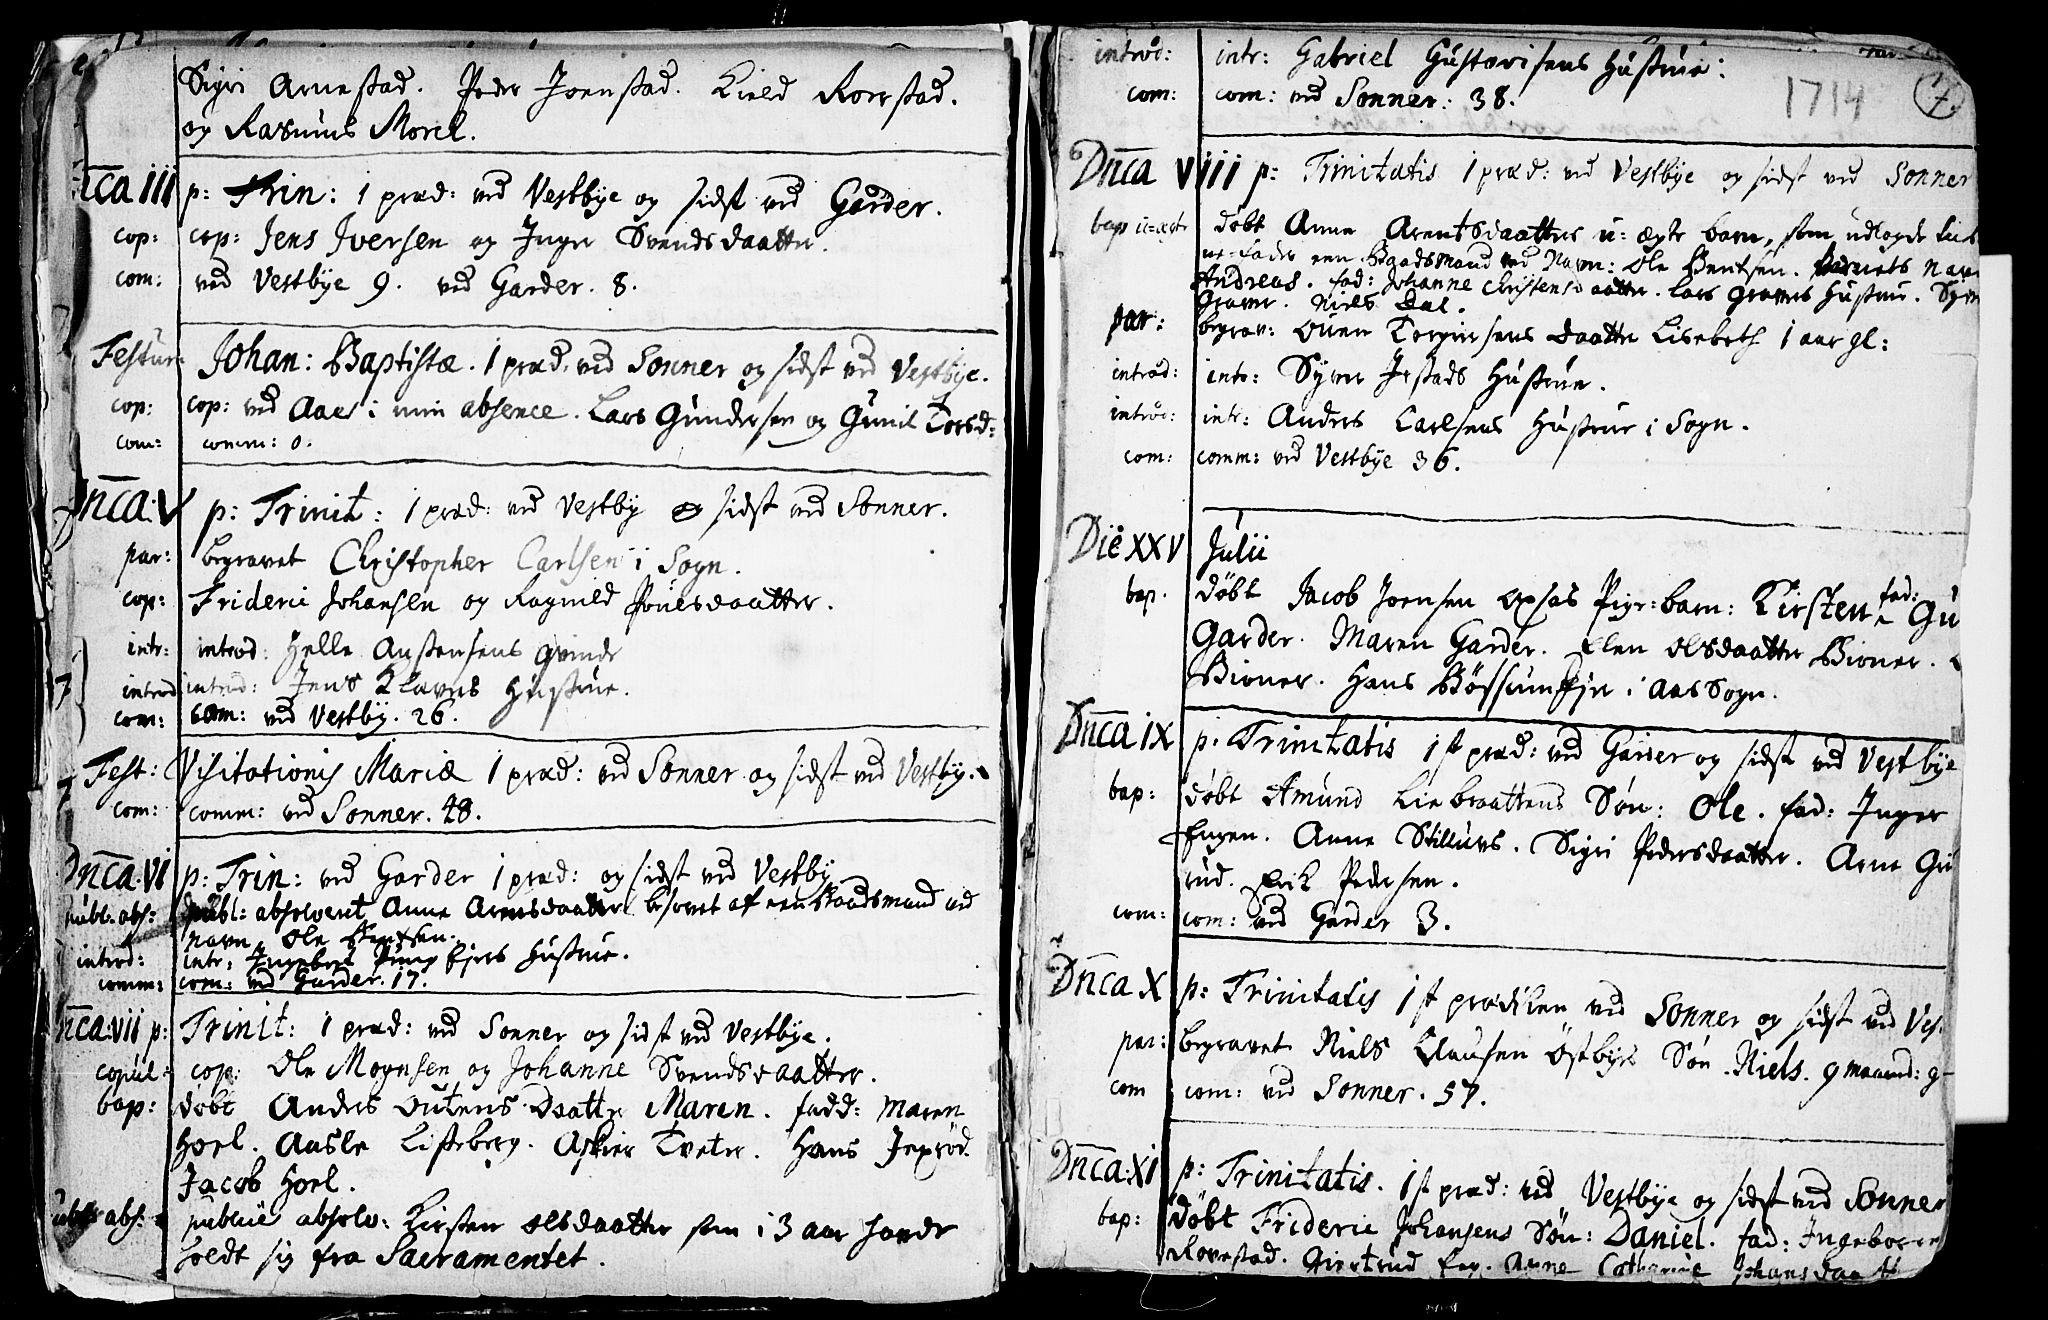 Sigri Arnestad. Peder Joenstad. Kield Roerstad.
og Rasmus Morel.
nca iii p: Trin: 1 præd: ved Vestbÿe og sidst ved Garder.
cop: cop: Jens Jversen og Inger Svendsdaatter.
com: ved Vestbÿe 9. ved Garder. 8.
Festum Johan: Baptistæ. 1 præd: ved Sonner og sidst ved Vestbÿe.
cop: cop: ved Aaes i min absence. Lars Gundersen og Gunil Torsd:
com: comm: 0.
Dnca: V p: Trinit: 1 præd: ved Vestbÿ og sidst ved Sonner.
par: begravet Christopher Carlsen i Sogn.
cop: Frideric Johansen og Ragnild Povelsdaatter.
intr: introd: Helle Anstensens qvinde
introd introd: Jens Klavers Hustrue.
com: com: ved Vestbÿ. 26.
Fest: Visitationis Mariæ 1 præd: ved Sonner og sidst ved Vestbÿ.
com: comm: ved Sonner. 48.
Dnca: VI p: Trin: ved Garder 1 præd: og sidst ved Vestbÿ
publ: abs: publ: absolveret Anne Arensdaatter besovet af een baadsmand ved
Navn Ole Bentsen.
introd: intr: Ingebret Hustrue.
comm: com: ved Garder. 17.
nca: vii p: Trinit: 1 præd: ved Sonner og sidst ved Vestbÿe.
copul: cop: Ole Mognsen og Johanne Svendsdaatter.
bap: døbt Anders Outens Daatter Maren. fadd: Maren
Horl. Aasle Listeberg. Askier Tveter. Hans Jeprød
Jacob Horl.
abs: publicè absolv: Kirsten Olsdaatter som i 3 aar hafde
holdt sig fra Sacramentet.
introd: intr: Gabriel Gustavisens Hustrue:
com: com: ved Sonner: 38.
1714
7.
Dnca viii p: Trinitatis 1 præd: ved Vestbÿe og sidst ved Sonner
bap u=ægte døbt Anne Arentsdaatters u: ægte barn, som udlagde
een Baadsmand ved Navn: Ole Bentsen. Barnets navn
Andreas. fad: Johanne Christensdaatter. Lars Gravers Hustrue.
Graver. Niels Dal.
par: begrav: Ouen Torgiersens Daatter Lisebeth 1 aar gl:
introd: intr: Syver Jrstads Hustrue.
introd: intr: Anders Carlsens Hustrue i Sogn.
com: comm: ved Vestbÿe 36.
Die XXV Julii
bap. døbt Jacob Joensen Opsas Pige=barn: Kirsten. fad: Gu
Garder. Maren Garder. Elen Olsdaatter Bioner.
Bioner. Hans i Aas Sogn.
Dnca ix p. Trinitatis 1st præd: ved Garder og sidst ved Vestbÿe
bap: døbt Amund Liebraattens Søn: Ole. fad: Inger
Engen. Anne Stillurs. Sigri Pedersdaatter. Arne Gu
rud. Erik Pedersen.
com: com: ved Garder 3.
Dnca X p: Trinitatis 1st prædiken ved Sonner og sidst ved Ves
par: begravet Niels Clausen Østbÿes Søn Niels. 9 maaned: g
com com: ved Sonner. 57.
Dnca: XI p: Trinitatis. 1st præd: ved Vestbÿe og sidst ved Sonner
bap: døbt Frideric Johansens Søn: Daniel. fad: Ingeborre
Rovestad. Giertrud Anne Catharine Johansdaatt